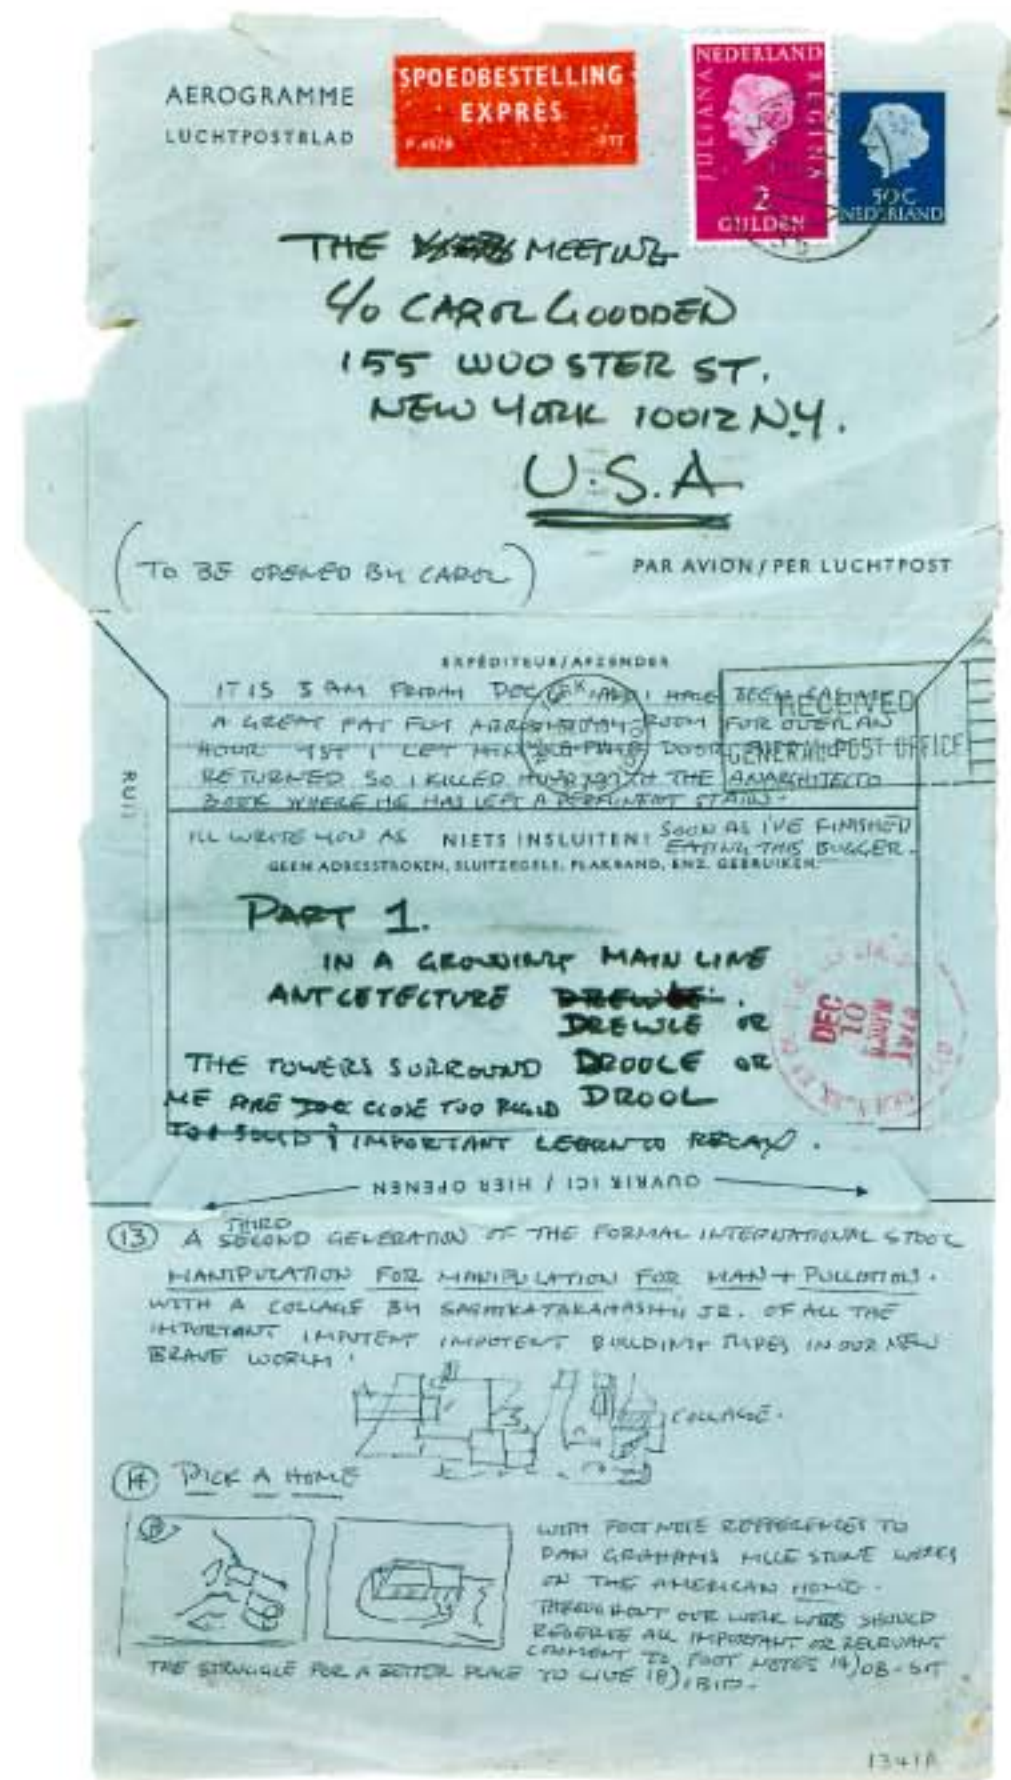 AEROGRAMME
LUCHTPOSTBLAD
SPOEDBESTELLING
EXPRÈS
PTT
NEDERLAND
JULIANA REGINA
2
GULDEN
50C
NEDERLAND
THE MEETING
C/O CAROL GOODDEN
155 WOOSTER ST.
NEW YORK 10012 N.Y.
U.S.A
(TO BE OPENED BY CAROL)
PAR AVION / PER LUCHTPOST
EXPÉDITEUR/AFZENDER
IT IS 3 AM FRIDAY DEC AND I HAVE BEEN
A GREAT FAT FLY ROOM FOR OVER AN
HOUR YET I LET HIM DOOR
RETURNED SO I KILLED THE ANARCHITECTO
BOOK WHERE HE HAS LEFT A PERMINENT STAIN.
RECEIVED
GENERAL POST OFFICE
RUIT
I'LL WRITE YOU AS SOON AS I'VE FINISHED
EATING THIS BUGGER.
NIETS INSLUITEN!
GEEN ADRESSTROKEN, SLUITZEGELS, PLAKBAND, ENZ. GEBRUIKEN.
PART 1.
IN A GROWING MAIN LINE
ANTCETECTURE
DREWLE OR
DROOLE OR
DROOL
THE TOWERS SURROUND
ME ARE TOO CLOSE TOO RIGID
TOO SOLID & IMPORTANT LEARN TO RELAX.
DEC
10
OUVRIR ICI / HIER OPENEN
13 A SECOND THIRD GENERATION OF THE FORMAL INTERNATIONAL STOOL
MANIPULATION FOR MANIPULATION FOR MAN + PULLOTION.
WITH A COLLAGE BY JR. OF ALL THE
IMPORTANT IMPUTENT IMPOTENT BUILDING TYPES IN OUR NEW
BRAVE WORLD!
COLLAGE.
14 PICK A HOME
WITH FOOT NOTE REFFERENCES TO
DAN GRAHAMS MILE STONE WORKS
ON THE AMERICAN HOME.
THROUGHOUT OUR WORK WE SHOULD
RESERVE ALL IMPORTANT OR RELEUVANT
COMMENT TO FOOT NOTES 14) OB-SIT
THE STRUGGLE FOR A BETTER PLACE TO LIVE 18) IBID.
1341A